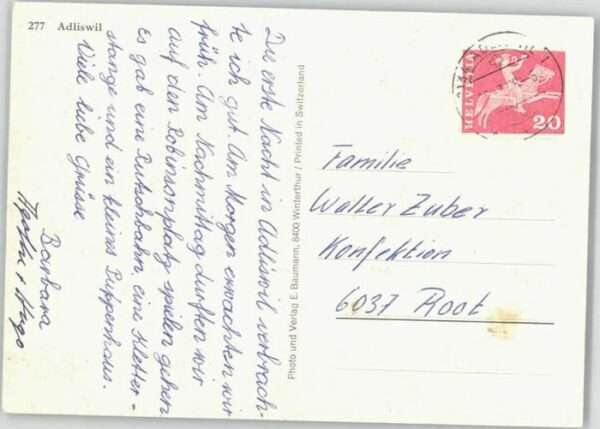 277 Adliswil
Die erste Nacht in Adliswil verbrach-
te ich gut. Am Morgen erwachten wir
früh. Am Nachmittag durften wir
auf den Robinsonplatz spielen gehen
Es gab eine Rutschbahn, eine Kletter-
stange und ein kleines Puppenhaus.
Viele liebe Grüsse
Barbara
+ Hugo
Photo und Verlag E. Baumann, 8400 Winterthur / Printed in Switzerland
HELVETIA
20
Familie
Walter Zuber
Konfektion
6037 Root